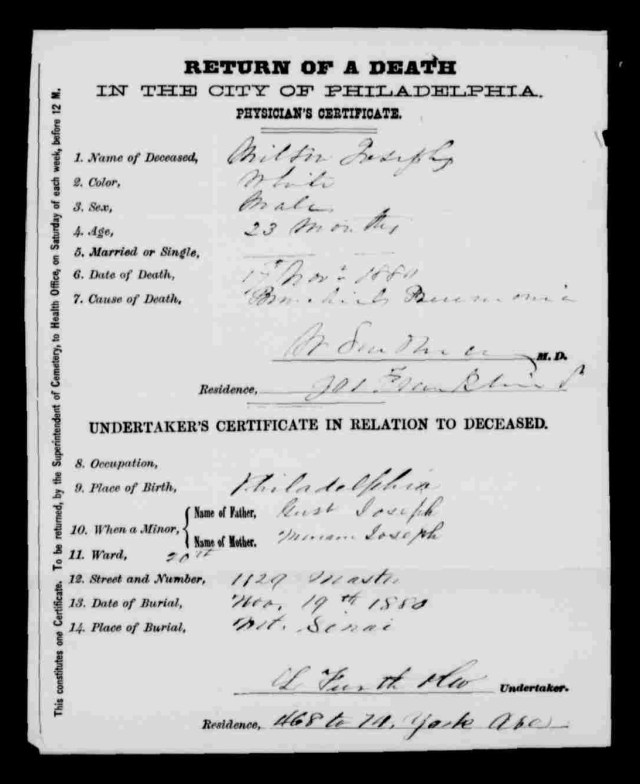 RETURN OF A DEATH
IN THE CITY OF PHILADELPHIA.
PHYSICIAN'S CERTIFICATE.
1. Name of Deceased, Milton Joseph
2. Color, White
3. Sex, Male
4. Age, 23 Months
5. Married or Single,
6. Date of Death, 17" Nov. 1880
7. Cause of Death, Pneumonia
M. D.
Residence, Franklin St
UNDERTAKER'S CERTIFICATE IN RELATION TO DECEASED.
8. Occupation,
9. Place of Birth, Philadelphia
10. When a Minor, Name of Father, Joseph
Name of Mother. Joseph
11. Ward, 20th
12. Street and Number, 1129 Master
13. Date of Burial, Nov. 19th 1880
14. Place of Burial, Mt. Sinai
Furth Undertaker.
Residence, 468 to York Ave
This constitutes one Certificate. To be returned, by the Superintendent of Cemetery, to Health Office, on Saturday of each week, before 12 M.